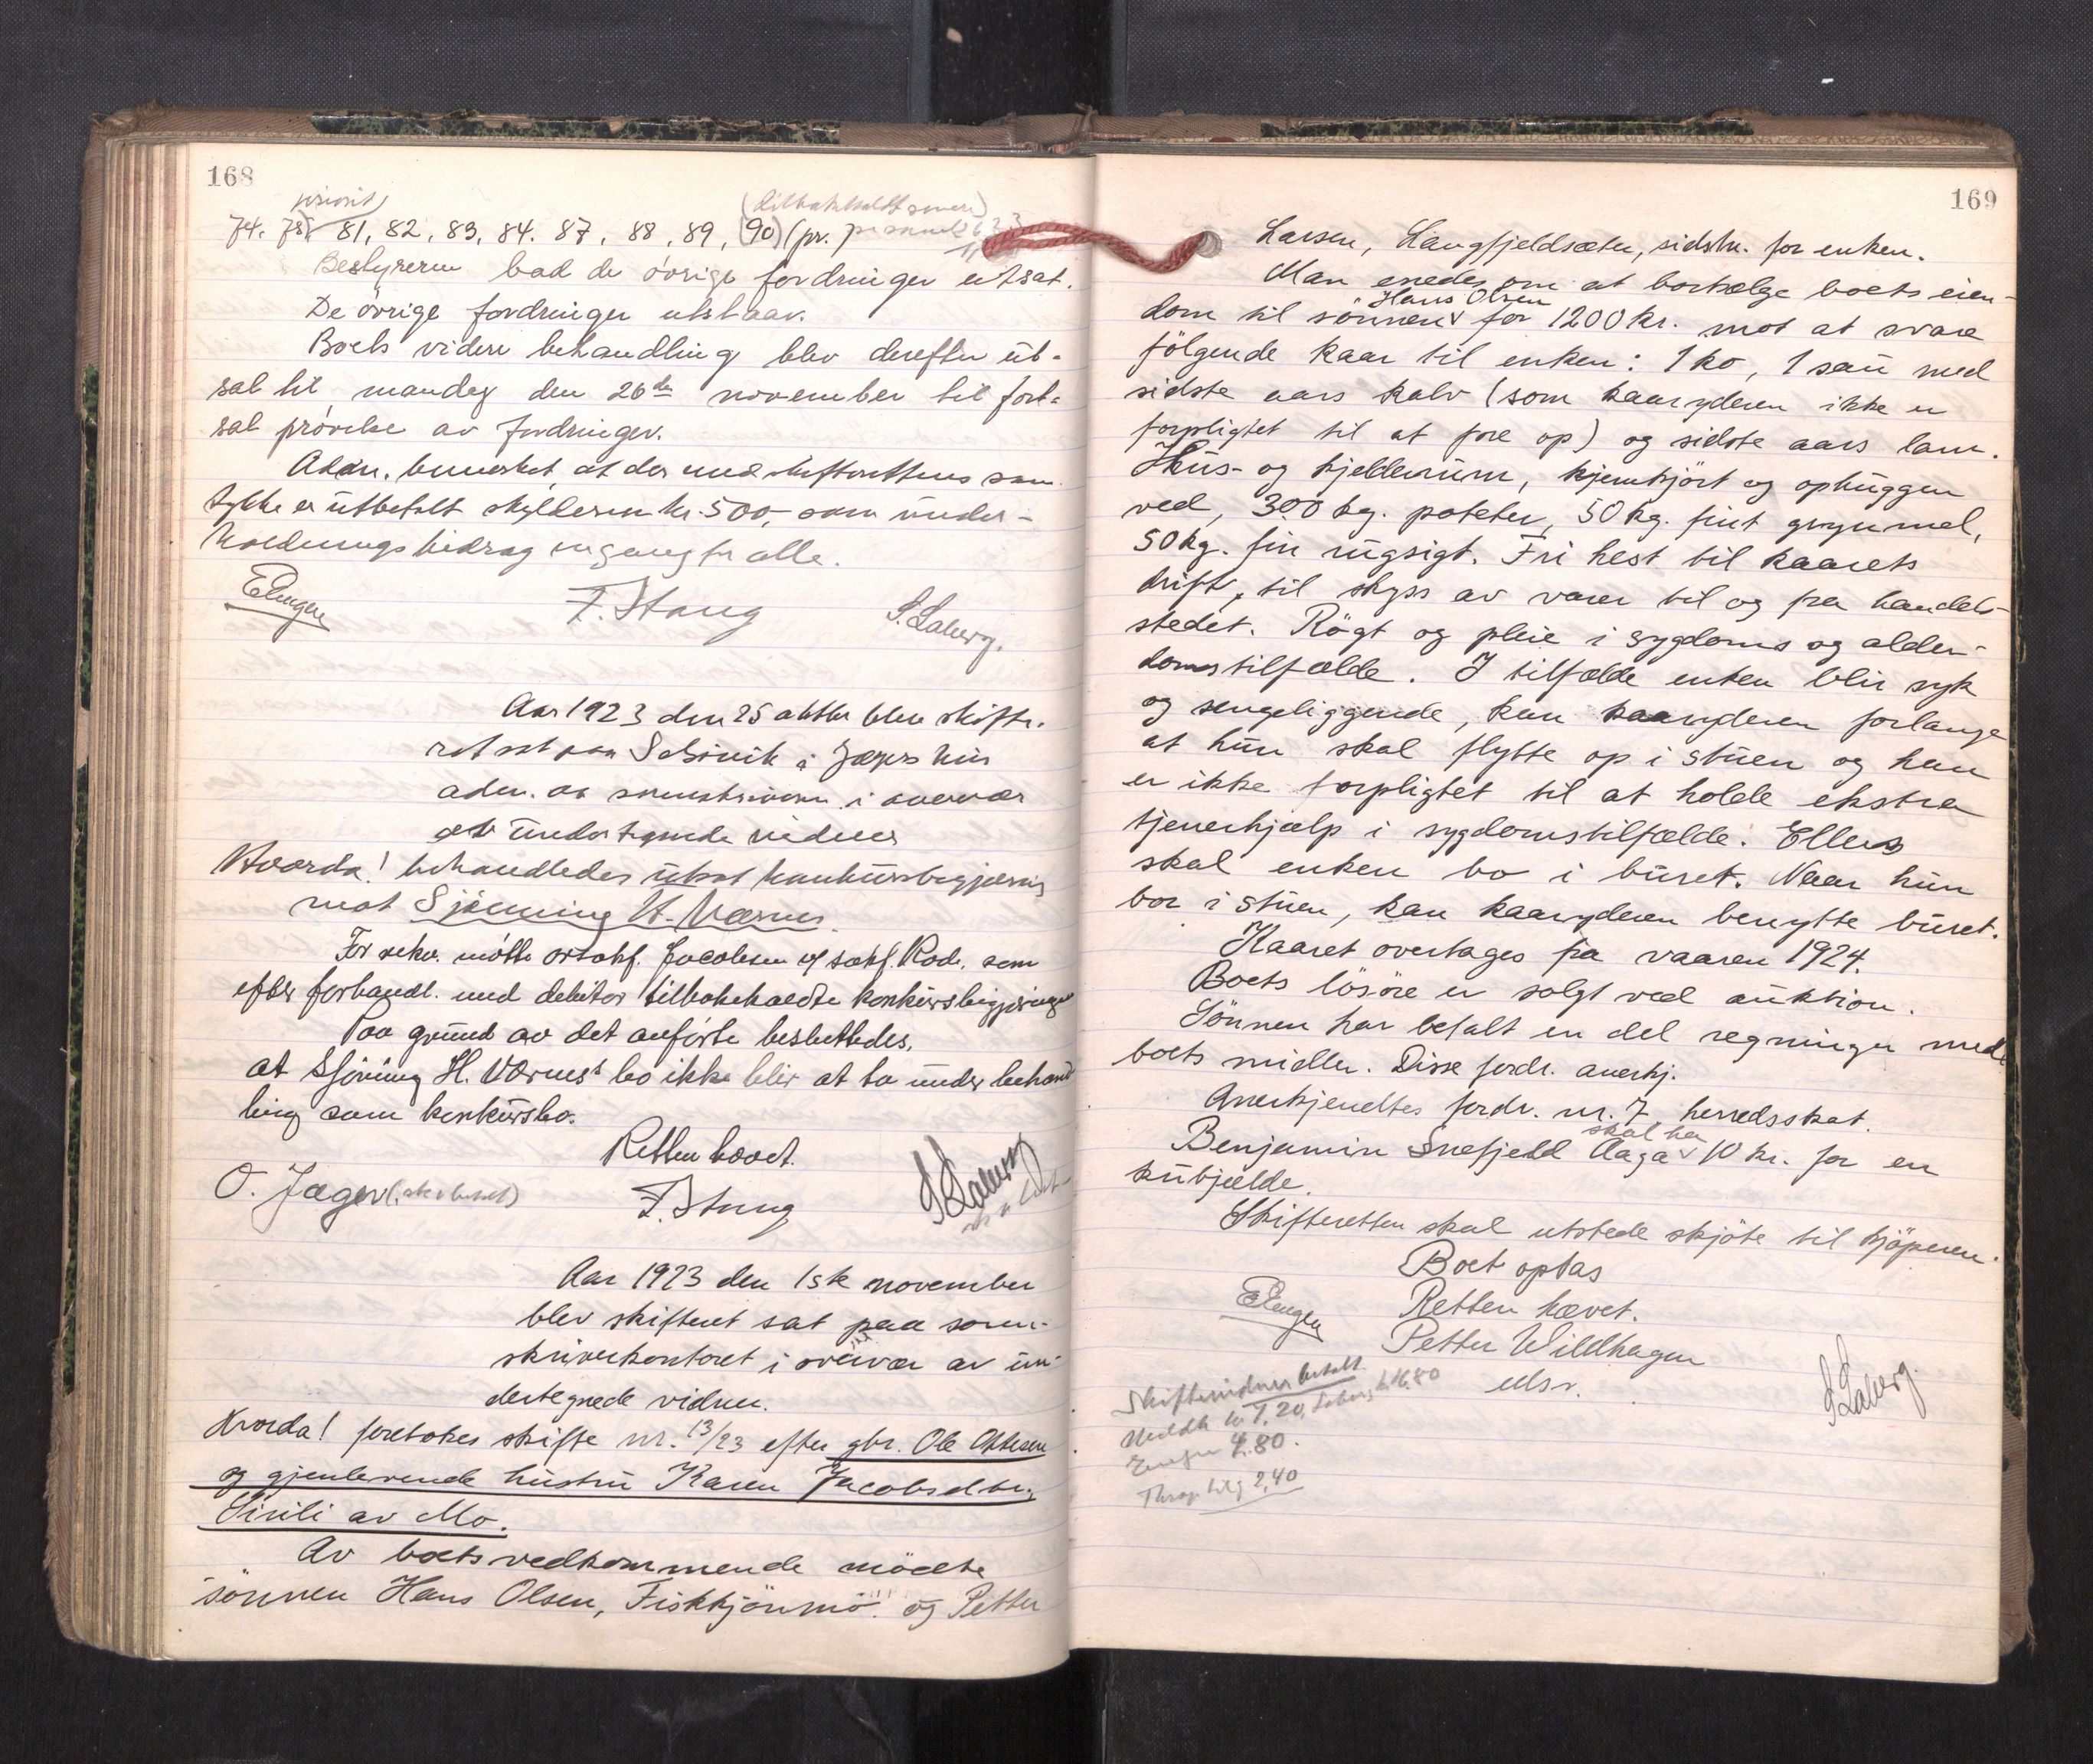 168
priorit
74. 78) 81, 82, 83, 84. 87, 88, 89, (90) (pr.
Bestyreren bad de övrige fordringer utsat.
De övrige fordringer utstaar.
Boets videre behandling blev derefter ut-
sat til mandag den 26de november til fort-
sat prövelse av fordringer.
Adm. bemerket at der med skifterettens sam
tykke er utbetalt skylderen kr. 500,- som under-
holdningsbidrag engang for alle.
F. Stang
S. Laberg.
Aar 1923 den 25 oktbr blev skifte-
ret sat paa i Jægers hus
adm. av sorenskriveren i overvær
av undertegnede vidner
Hvorda! behandledes utsat konkursbegjæring
mot Sjönning H. Værnes.
For rekv. mötte o.r.sakf. Jacobsen og sakf. Rode, som
efter forhandl. med debitor tilbakekaldte konkursbegjæringen
Paa grund av det anförte besluttedes,
at Sjönning H. Værnes's bo ikke blir at ta under behand
ling som konkursbo.
Retten hævet.
O. Jæger
F. Stang
S Laberg
Aar 1923 den 1ste november
blev skifteret sat paa soren-
skriverkontoret i overvær av un-
dertegnede vidner.
Hvorda! foretokes skifte nr. 13/23 efter gbr. Ole Ottesen
og gjenlevende hustru Karen Jacobsdtr.,
Sirili av Mo.
Av boets vedkommende mödte
sönnen Hans Olsen, Fiskkjönmo og Petter
169
Larsen, Langfjeldsæter, sidstn. for enken.
Man enedes om at bortsælge boets eien-
Hans Olsen
dom til sönnen v for 1200 kr. mot at svare
fölgende kaar til enken: 1 ko, 1 sau med
sidste aars kalv (som kaaryderen ikke er
forpligtet til at fore op) og sidste aars lam.
Hus- og kjelderrum, hjemkjört og ophuggen
ved, 300 kg. poteter, 50 kg. fint grynmel,
50 kg. fin rugsigt. Fri hest til kaarets
drift, til skyss av varer til og fra handels-
stedet. Rögt og pleie i sygdoms og alder-
domstilfælde. I tilfælde enken blir syk
og sengeliggende, kan kaaryderen forlange
at hun skal flytte op i stuen og han
er ikke forpligtet til at holde ekstra
tjenerhjælp i sygdomstilfælde. Ellers
skal enken bo i buret. Naar hun
bor i stuen, kan kaaryderen benytte buret.
Kaaret overtages fra vaaren 1924.
Boets lösöre er solgt ved auktion.
Sönnen har betalt en del regninger med
boets midler. Disse fordr. anerkj.
Anerkjendtes fordr. nr. 7, herredsskat.
skal ha
Benjamin Snefjeld Aaga v 10 kr. for en
kubjelde.
Skifteretten skal utstede skjöte til kjöperen.
Boet optas
Retten hævet.
Petter Willhagen
S Laberg.
Skiftevidner betalt
4.80.
2,40